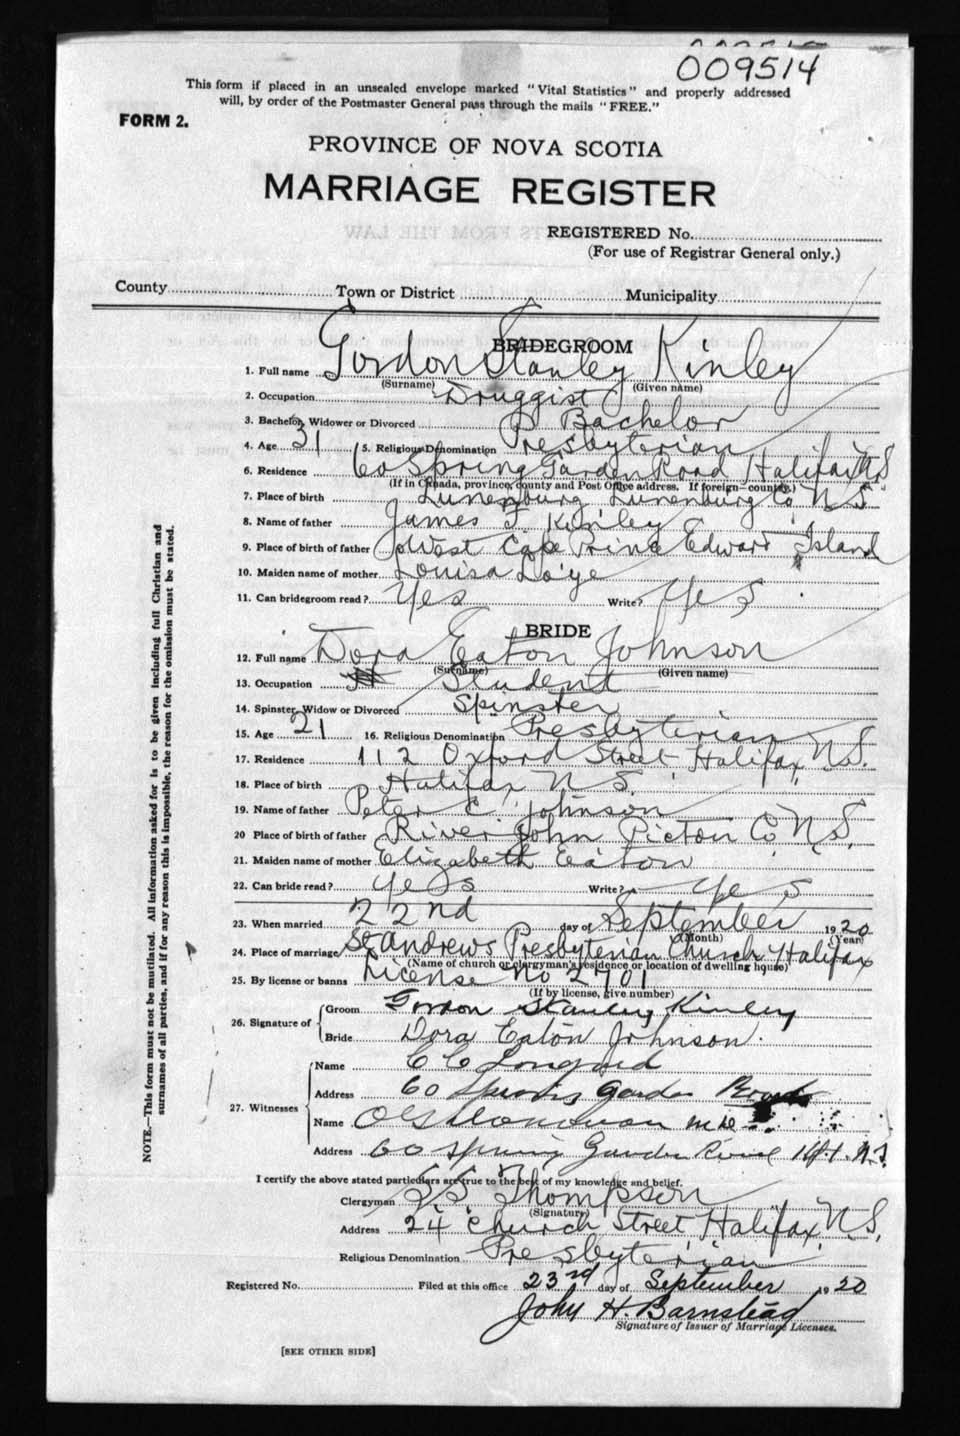 009514
This form if placed in an unsealed envelope marked "Vital Statistics" and properly addressed
will, by order of the Postmaster General pass through the mails "FREE."
FORM 2.
PROVINCE OF NOVA SCOTIA
MARRIAGE REGISTER
REGISTERED No.
(For use of Registrar General only.)
County Town or District Municipality
BRIDEGROOM
1. Full name Gordon Stanley Kinley
(Surname) (Given name)
2. Occupation Druggist
3. Bachelor, Widower or Divorced Bachelor
4. Age 31 5. Religious Denomination Presbyterian
6. Residence 60 Spring Garden Road Halifax N.S
(If in Canada, province, county and Post Office address. If foreign—country.)
7. Place of birth Lunenburg Lunenburg Co N.S
8. Name of father James F. Kinley
9. Place of birth of father West Cape Prince Edward Island
10. Maiden name of mother Louisa Loye
11. Can bridegroom read? Yes Write? Yes
BRIDE
12. Full name Dora Eaton Johnson
(Surname) (Given name)
13. Occupation Student
14. Spinster, Widow or Divorced Spinster
15. Age 21 16. Religious Denomination Presbyterian
17. Residence 112 Oxford Street Halifax, N.S.
18. Place of birth Halifax N.S.
19. Name of father Peter C. Johnson
20 Place of birth of father River John Pictou Co N.S.
21. Maiden name of mother Elizabeth Eaton
22. Can bride read? Yes Write? Yes
23. When married 22nd day of September 1920
(Month) (Year)
24. Place of marriage St Andrews Presbyterian Church Halifax
(Name of church or clergyman's residence or location of dwelling house)
25. By license or banns License No 2101
(If by license, give number)
26. Signature of Groom Gordon Stanley Kinley
Bride Dora Eaton Johnson.
27. Witnesses
Name C C Longard
Address 60 Spring Garden Road
Name
Address 60 Spring Garden Road Hfx. N.S.
I certify the above stated particulars are true to the best of my knowledge and belief.
Clergyman Thompson
(Signature)
Address 24 Church Street, Halifax, N.S.
Religious Denomination Presbyterian
Registered No. Filed at this office 23rd day of September 1920
John H. Barnstead
Signature of Issuer of Marriage Licenses.
[SEE OTHER SIDE]
NOTE.—This form must not be mutilated. All information asked for is to be given including full Christian and
surnames of all parties, and if for any reason this is impossible, the reason for the omission must be stated.